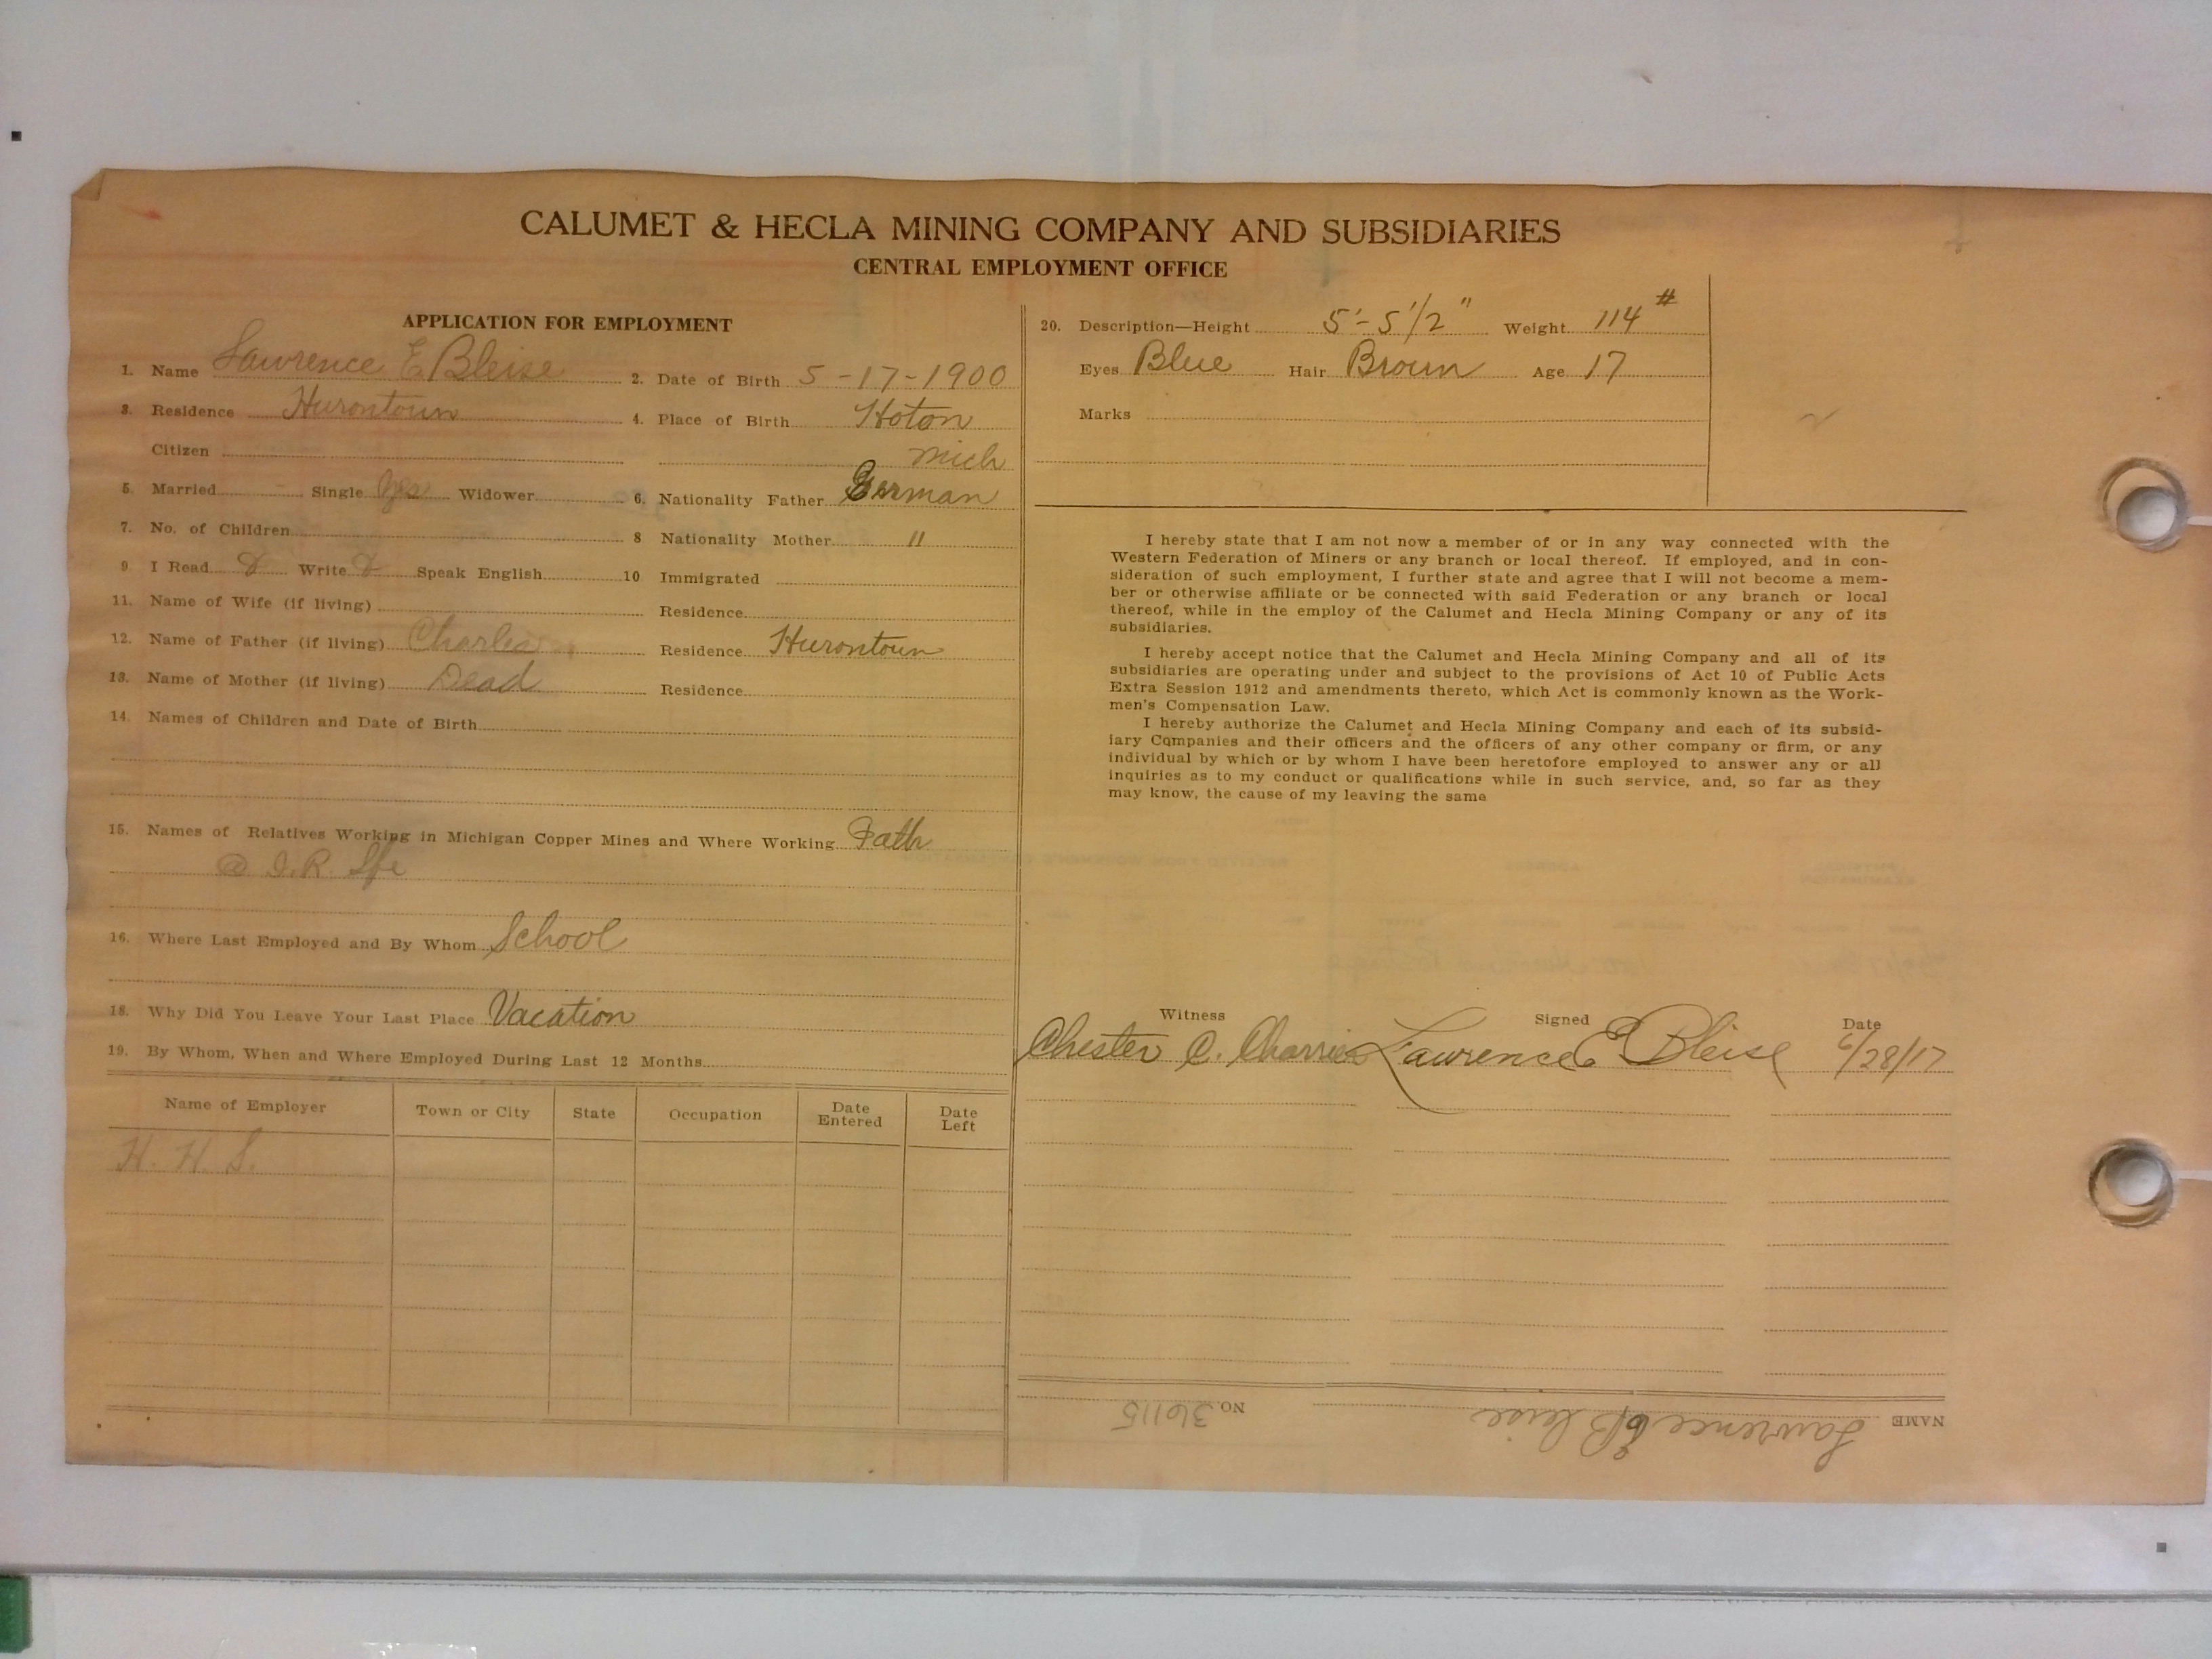 CALUMET & HECLA MINING COMPANY AND SUBSIDIARIES
CENTRAL EMPLOYMENT OFFICE
APPLICATION FOR EMPLOYMENT
1. Name Lawrence E Bleise 2. Date of Birth 5-17-1900
3. Residence Hurontown 4. Place of Birth Hoton
Citizen Mich
5. Married - Single yes Widower 6. Nationality Father German
7. No. of Children 8 Nationality Mother "
9. I Read Write Speak English 10 Immigrated
11. Name of Wife (if living) Residence
12. Name of Father (if living) Charles Residence Hurontown
13. Name of Mother (if living) Dead Residence
14. Names of Children and Date of Birth
15. Names of Relatives Working in Michigan Copper Mines and Where Working Fath
@ I.R.
16. Where Last Employed and By Whom School
18. Why Did You Leave Your Last Place Vacation
19. By Whom, When and Where Employed During Last 12 Months
Name of Employer Town or City State Occupation Date Entered Date Left
H. H. S.
20. Description—Height 5'-5 1/2" Weight 114 #
Eyes Blue Hair Brown Age 17
Marks
I hereby state that I am not now a member of or in any way connected with the
Western Federation of Miners or any branch or local thereof. If employed, and in con-
sideration of such employment, I further state and agree that I will not become a mem-
ber or otherwise affiliate or be connected with said Federation or any branch or local
thereof, while in the employ of the Calumet and Hecla Mining Company or any of its
subsidiaries.
I hereby accept notice that the Calumet and Hecla Mining Company and all of its
subsidiaries are operating under and subject to the provisions of Act 10 of Public Acts
Extra Session 1912 and amendments thereto, which Act is commonly known as the Work-
men's Compensation Law.
I hereby authorize the Calumet and Hecla Mining Company and each of its subsid-
iary Companies and their officers and the officers of any other company or firm, or any
individual by which or by whom I have been heretofore employed to answer any or all
inquiries as to my conduct or qualifications while in such service, and, so far as they
may know, the cause of my leaving the same
Witness Signed Date
Chester C. Lawrence E Bleise 6/28/17
NAME Lawrence E Bleise NO. 36115